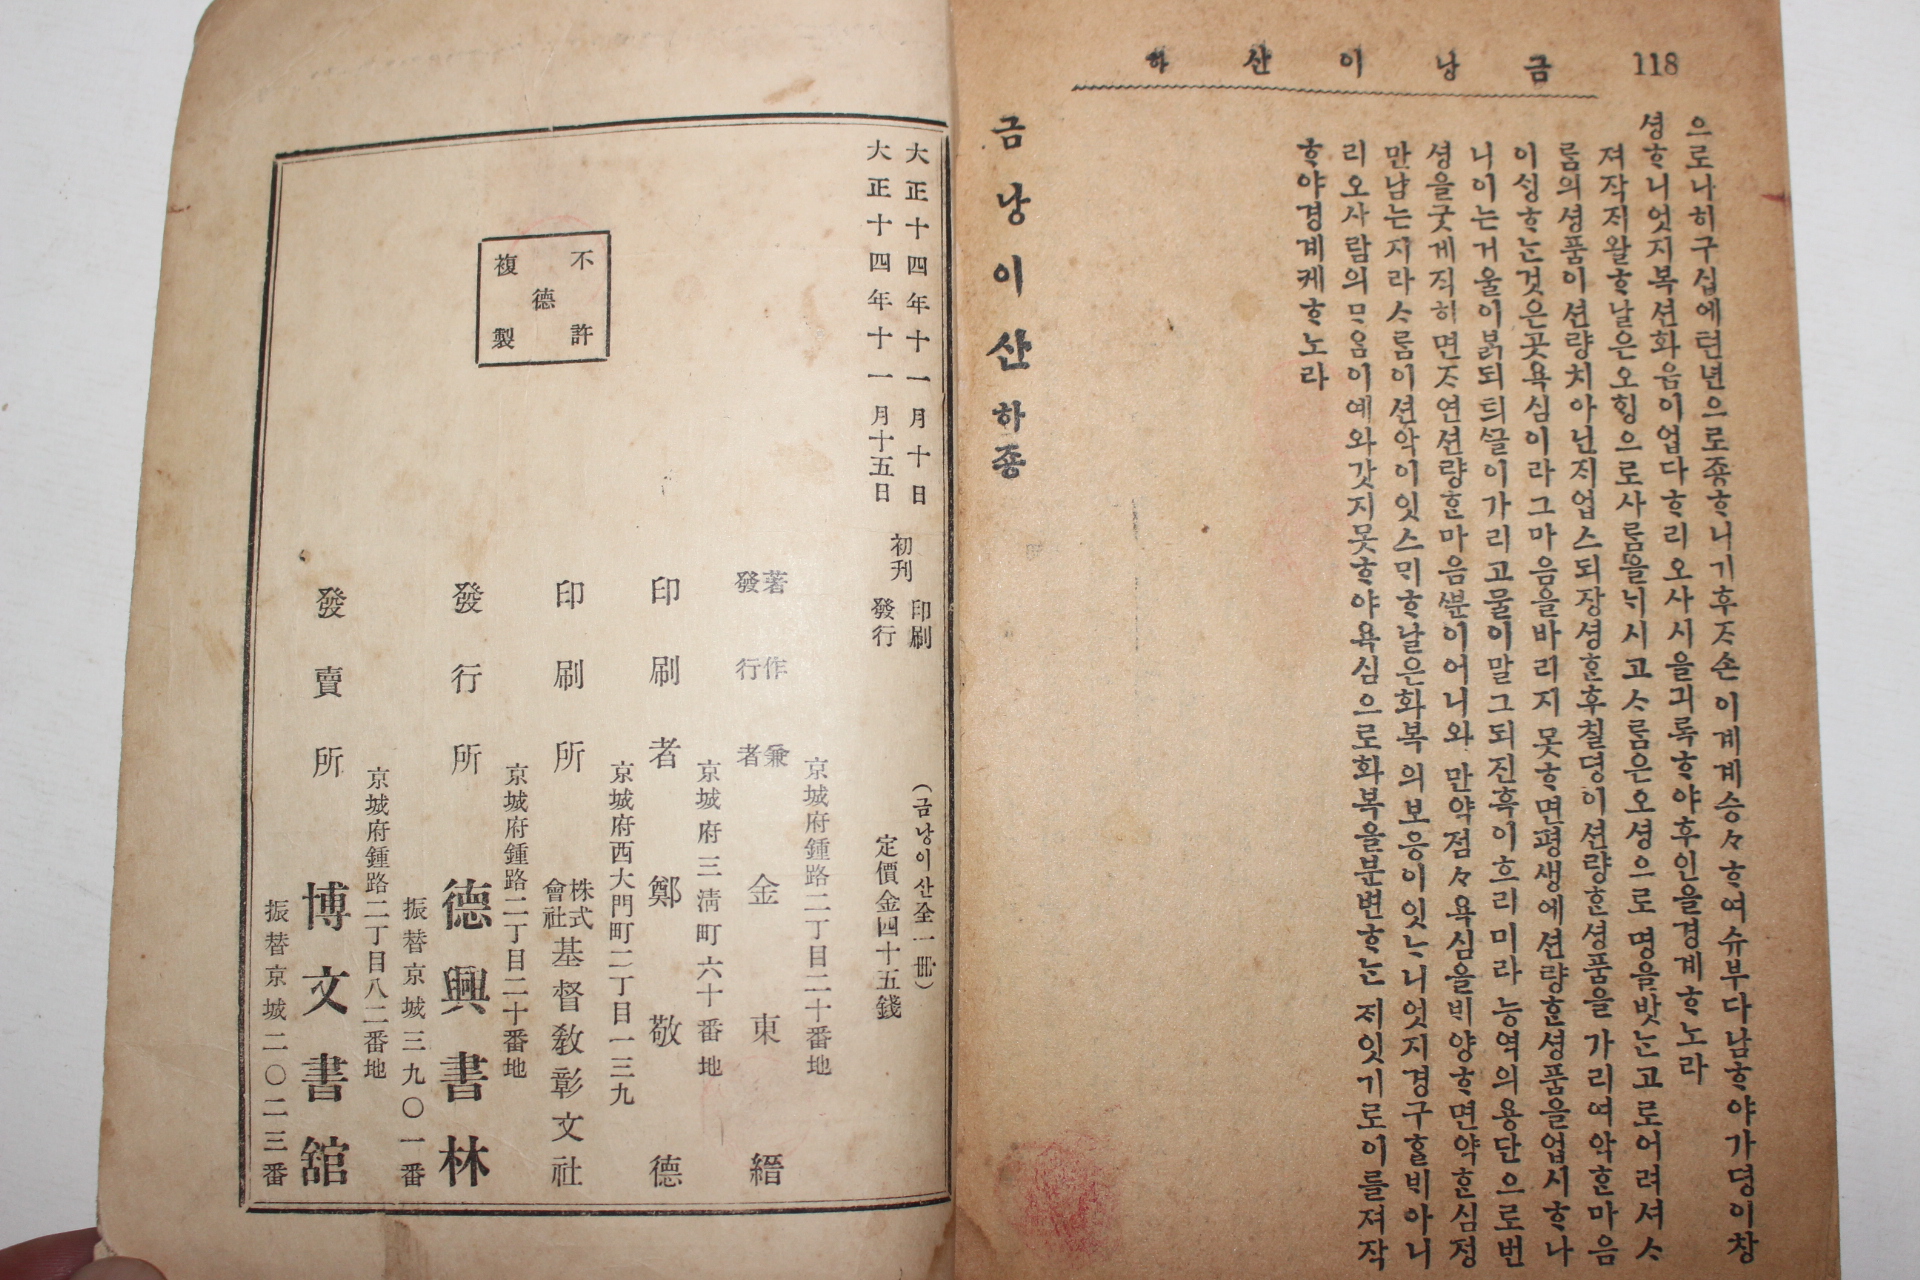 118 금낭이산 하
으로나히구십에텬년으로죵ᄒᆞ니기후ᄌᆞ손이계계승々ᄒᆞ여슈부다남ᄒᆞ야가뎡이창
셩ᄒᆞ니엇지복션화음이업다ᄒᆞ리오사시을긔록ᄒᆞ야후인을경계ᄒᆞ노라
져작ᄌᆡ왈ᄒᆞ날은오ᄒᆡᆼ으로사ᄅᆞᆷ을ᄂᆡ시고ᄉᆞᄅᆞᆷ은오셩으로명을밧ᄂᆞᆫ고로어려셔ᄉᆞ
ᄅᆞᆷ의셩품이션량치아닌ᄌᆡ업스되장셩ᄒᆞᆫ후칠뎡이션량ᄒᆞᆫ셩품을가리여악ᄒᆞᆫ마음
이ᄉᆡᆼᄒᆞᄂᆞᆫ것은곳욕심이라그마음을바리지못ᄒᆞ면평생에션량ᄒᆞᆫ셩품을업시ᄒᆞ나
니이는거울이붉되틔ᄭᅳᆯ이가리고물이말그되진흑이흐리미라능역의용단으로번
셩을굿게직히면ᄌᆞ연션량ᄒᆞᆫ마음ᄲᅮᆫ이어니와만약점々욕심을ᄇᆡ양ᄒᆞ면약ᄒᆞᆫ심졍
만남는지라ᄉᆞᄅᆞᆷ이션악이잇스ᄆᆡᄒᆞ날은화복의보응이잇ᄂᆞ니엇지경구ᄒᆞᆯᄇᆡ아니
리오사람의ᄆᆞ음이예와갓지못ᄒᆞ야욕심으로화복을분변ᄒᆞᄂᆞᆫᄌᆡ잇기로이를져작
ᄒᆞ야경계케ᄒᆞ노라
금낭이산하죵
大正十四年十一月十日 印刷
大正十四年十一月十五日 發行
初刊
(금낭이산全一冊)
定價金四十五錢
不許複製
德
京城府鍾路二丁目二十番地
著作兼發行者 金東縉
京城府三淸町六十番地
印刷者 鄭敬德
京城府西大門町二丁目一三九
印刷所 株式會社 基督敎彰文社
京城府鍾路二丁目二十番地
發行所 德興書林
振替京城三九〇一番
京城府鍾路二丁目八二番地
發賣所 博文書舘
振替京城二〇二三番